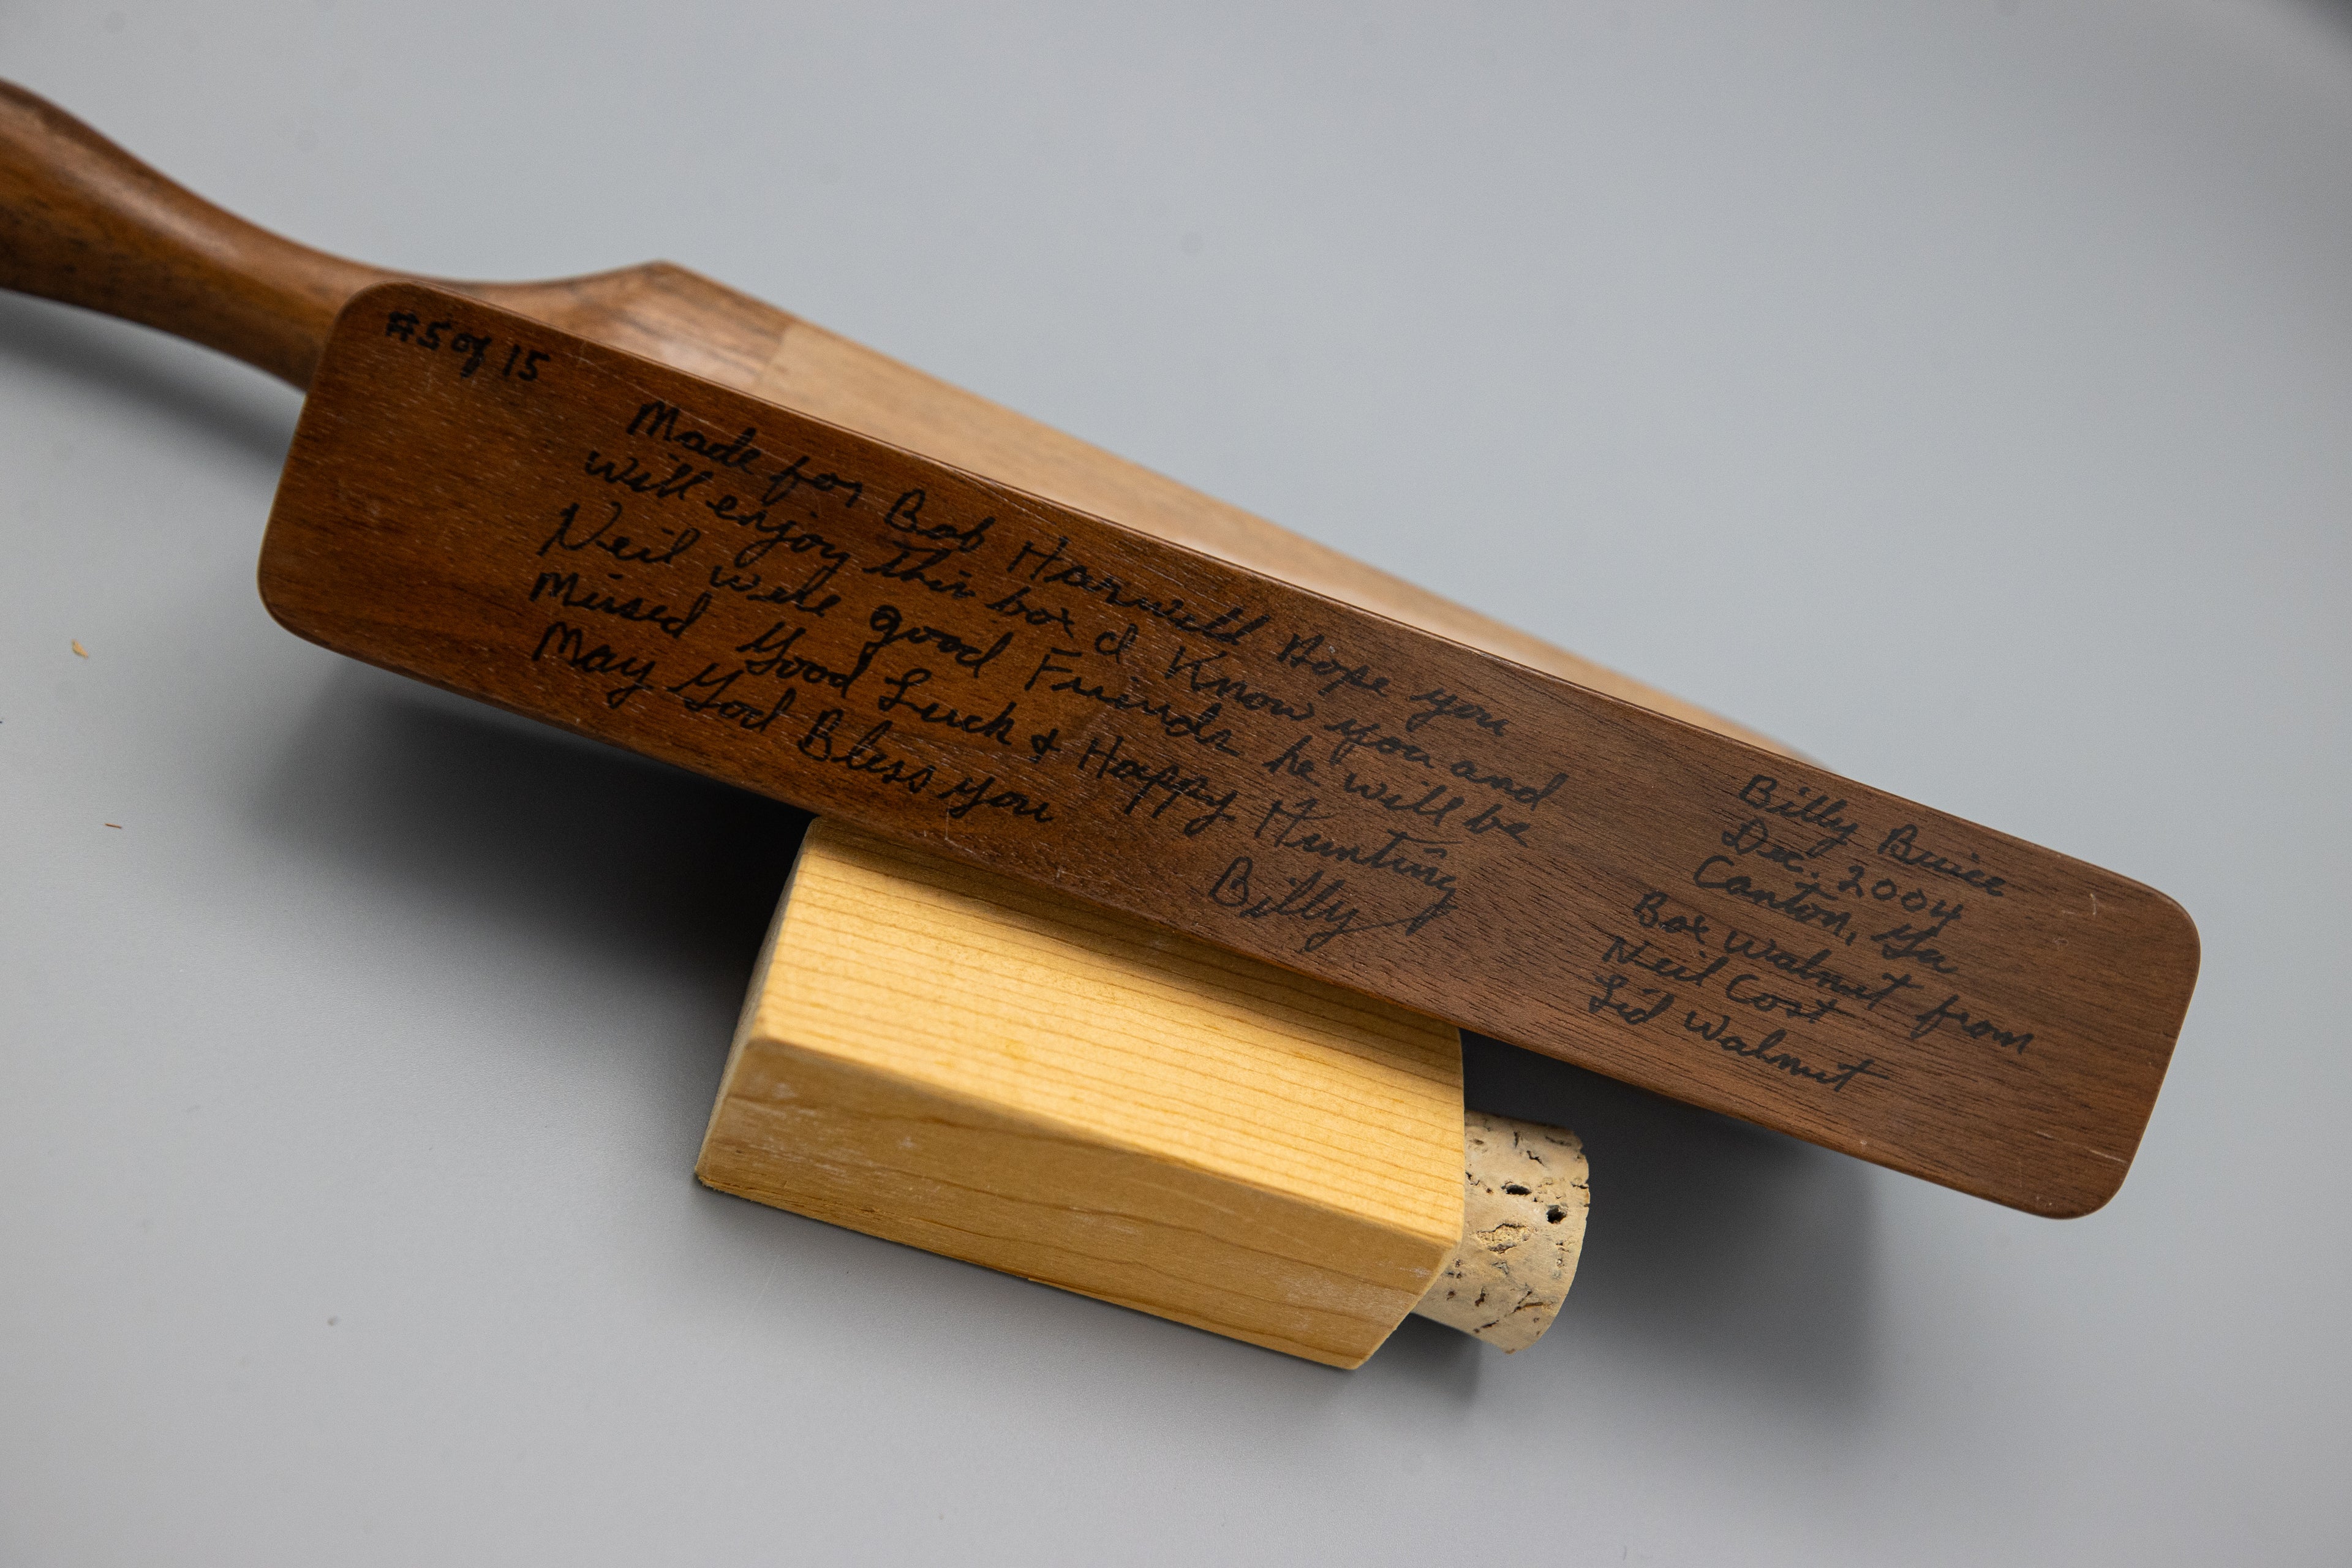 #5 of 15
Made for Bob Harwell Hope you
will enjoy this box I Know you and
Neil were good Friends he will be
Missed Good Luck & Happy Hunting
May God Bless you
Billy
Billy Buice
Dec. 2004
Canton, Ga
Box walnut from
Neil Cost
Lid walnut